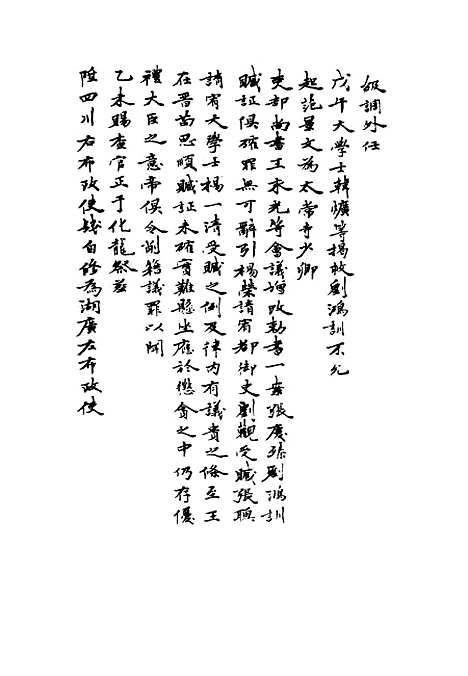 級調外任
戊午大學士韓爌等揭救劉鴻訓不允
起範景文為太常寺少卿
吏部尚書王永光等會議增改勅書一案張慶臻劉鴻訓
賍証俱確罪無可辭引楊榮請宥都御史劉觀受賍張聰
請宥大學士楊一清受賍之例及律內有議貴之條至王
在晋苗思順賍証未確實難懸坐應於懲貪之中仍存優
禮大臣之意帝俱令削籍議罪以聞
乙未賜查官正于化龍祭葬
陞四川右布政使錢自脩為湖廣左布政使